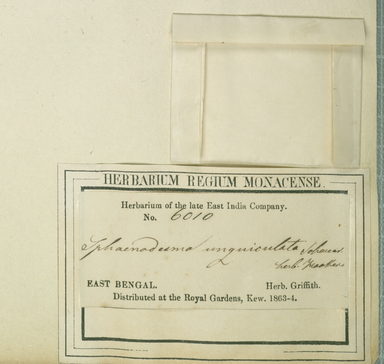 HERBARIUM REGIUM MONACENSE.
Herbarium of the late East India Company.
No. 6010
Sphaenodesma unguiculata Schauer
herb. Hooker
EAST BENGAL. Herb. Griffith.
Distributed at the Royal Gardens, Kew. 1863-4.